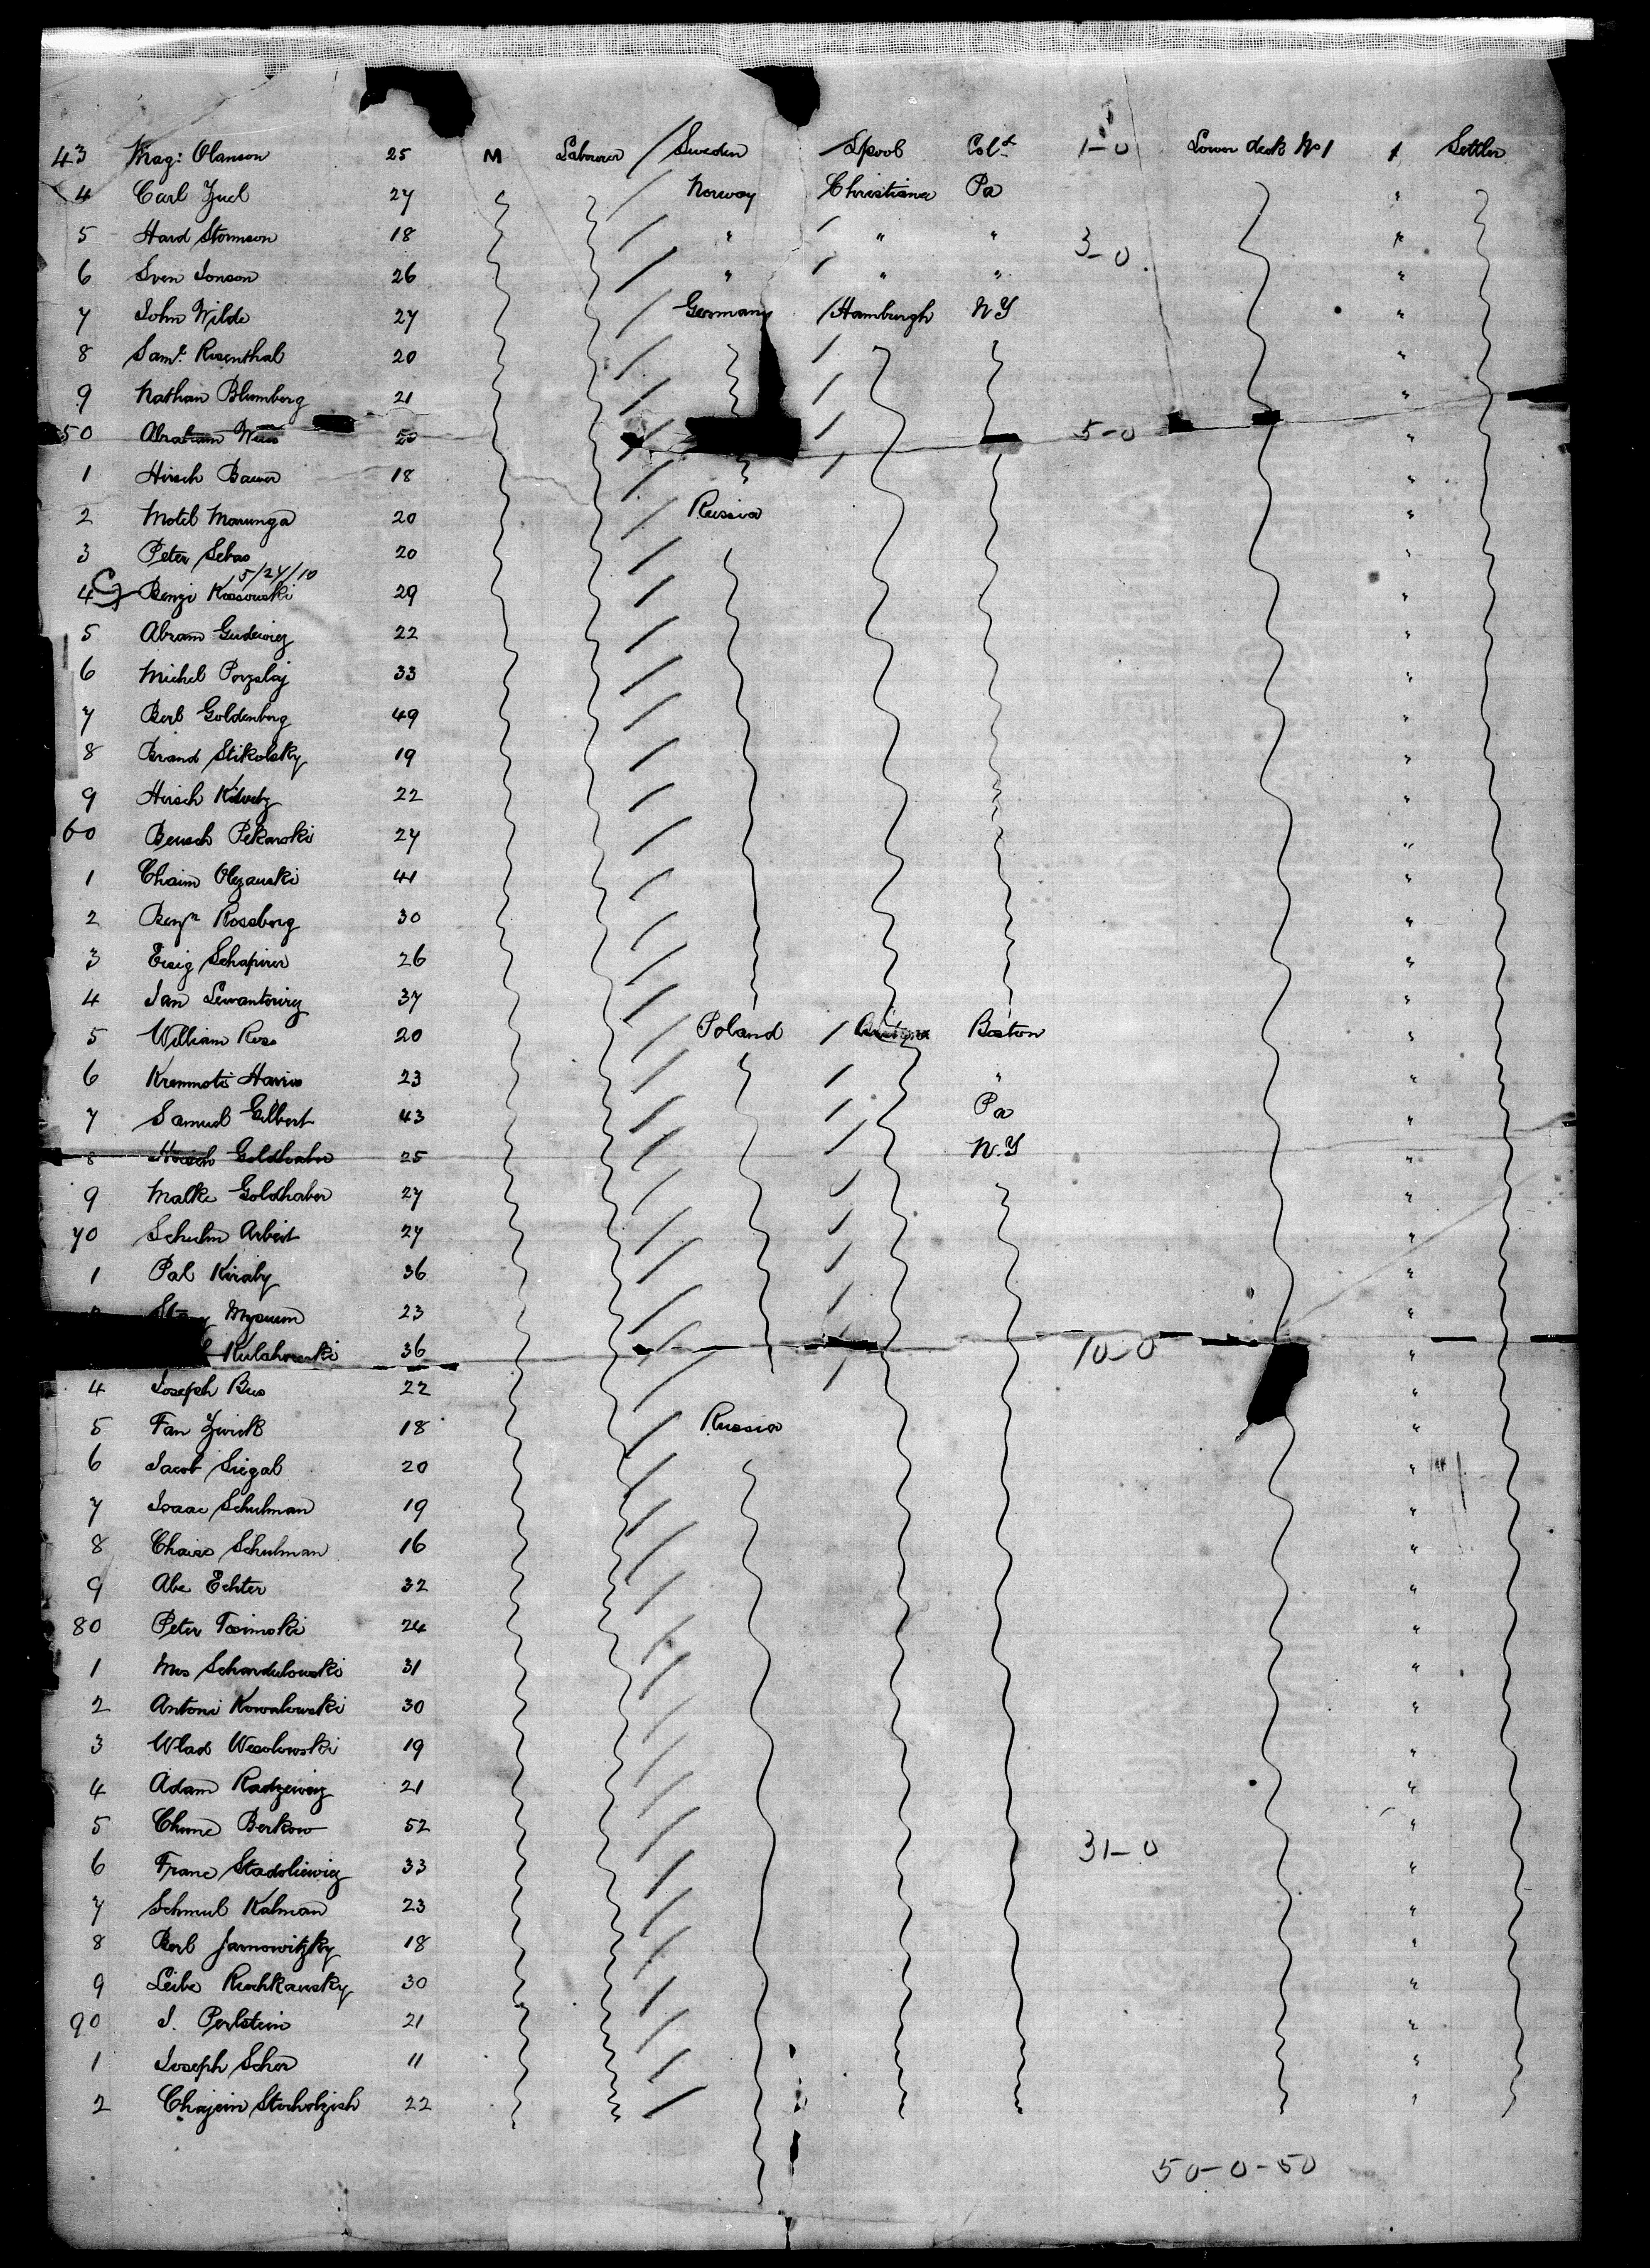 43 Mag: Olanson 25 M Labourer / Sweden / Lpool Col. 1-0 Lower deck No 1 1 Settler
4 Carl Zuel 27 / Norway Christiana Pa "
5 Hard Stormson 18 / " / " " 3-0 "
6 Sven Jonson 26 / " / " " "
7 John Wilde 27 / Germany / Hamburgh N Y "
8 Saml. Rosenthal 20 / / "
9 Nathan Blumberg 21 / / "
50 Abraham Weis 20 / / 5-0 "
1 Hirsch Bauer 18 / / "
2 Motel Marunga 20 / Russia "
3 Peter Sebas 20 / "
5/24/10
4 Benzi Kossowski 29 / "
5 Abram Gudewicz 22 / "
6 Michel Porzelaj 33 / "
7 Berl Goldenberg 49 / "
8 Brand Stikolsky 19 / "
9 Hirsch 22 / "
60 Beusch Pekarski 27 / "
1 Chaim Olezauski 41 / "
2 Benjn Rossberg 30 / "
3 Eisig Schapiro 26 / "
4 Jan Lewantowicz 37 / "
5 William Ross 20 / Poland / Boston "
6 Kremmotis Harris 23 / / " "
7 Samuel Gilbert 43 / / Pa "
8 Hirsch Goldhaber 25 / / N.Y "
9 Malke Goldhaber 27 / / "
70 Schulm Arbeit 27 / / "
1 Pal Kiraly 36 / / "
Mysrum 23 / / "
Kulahowski 36 / 10-0 "
4 Joseph Bus 22 / / "
5 Fan Zwick 18 / Russia "
6 Jacob Siegal 20 / "
7 Isaac Schulman 19 / "
8 Chaise Schulman 16 / "
9 Abe Echter 32 / "
80 Peter Tosimski 24 / "
1 Mrs Schandulowski 31 / "
2 Antoni Kowalowski 30 / "
3 Wlad Wesolowski 19 / "
4 Adam Radzewicz 21 / "
5 Chune Berkow 52 / 31-0 "
6 Franc Stadoliewicz 33 / "
7 Schmul Kalman 23 / "
8 Berl Jarnowitzky 18 / "
9 Leibe Ruchkansky 30 / "
90 J. Perlstein 21 / "
1 Joseph Scher 11 / "
2 Chajein Storholzish 22 / "
50-0-50